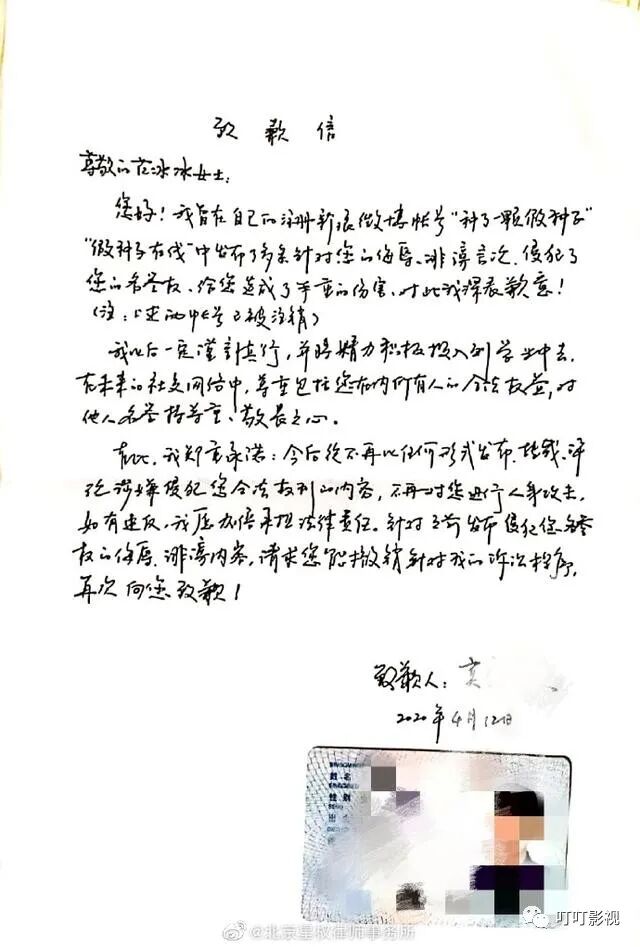 致歉信
尊敬的范冰冰女士:
您好!我曾在自己的注册新浪微博帐号“种了一颗微种子”
“微种子在线”中发布了多条针对您的侮辱、诽谤言论,侵犯了
您的名誉权、给您造成了严重的伤害,对此我深表歉意!
(注:上述两帐号已被注销)
我以后一定谨言慎行,并将精力积极投入到学业中去,
在未来的社交网络中,尊重包括您在内所有人的合法权益,对
他人名誉持尊重、敬畏之心。
在此,我郑重承诺:今后绝不再以任何形式发布、转载、评
论涉嫌侵犯您合法权利的内容,不再对您进行人身攻击,
如有违反,我愿加倍承担法律责任。针对之前发布侵犯您名誉
权的侮辱、诽谤内容,请求您能撤销针对我的诉讼程序,
再次向您致歉!
致歉人:
2020年4月12日
姓名
性别
出
@北京星权律师事务所
叮叮影视